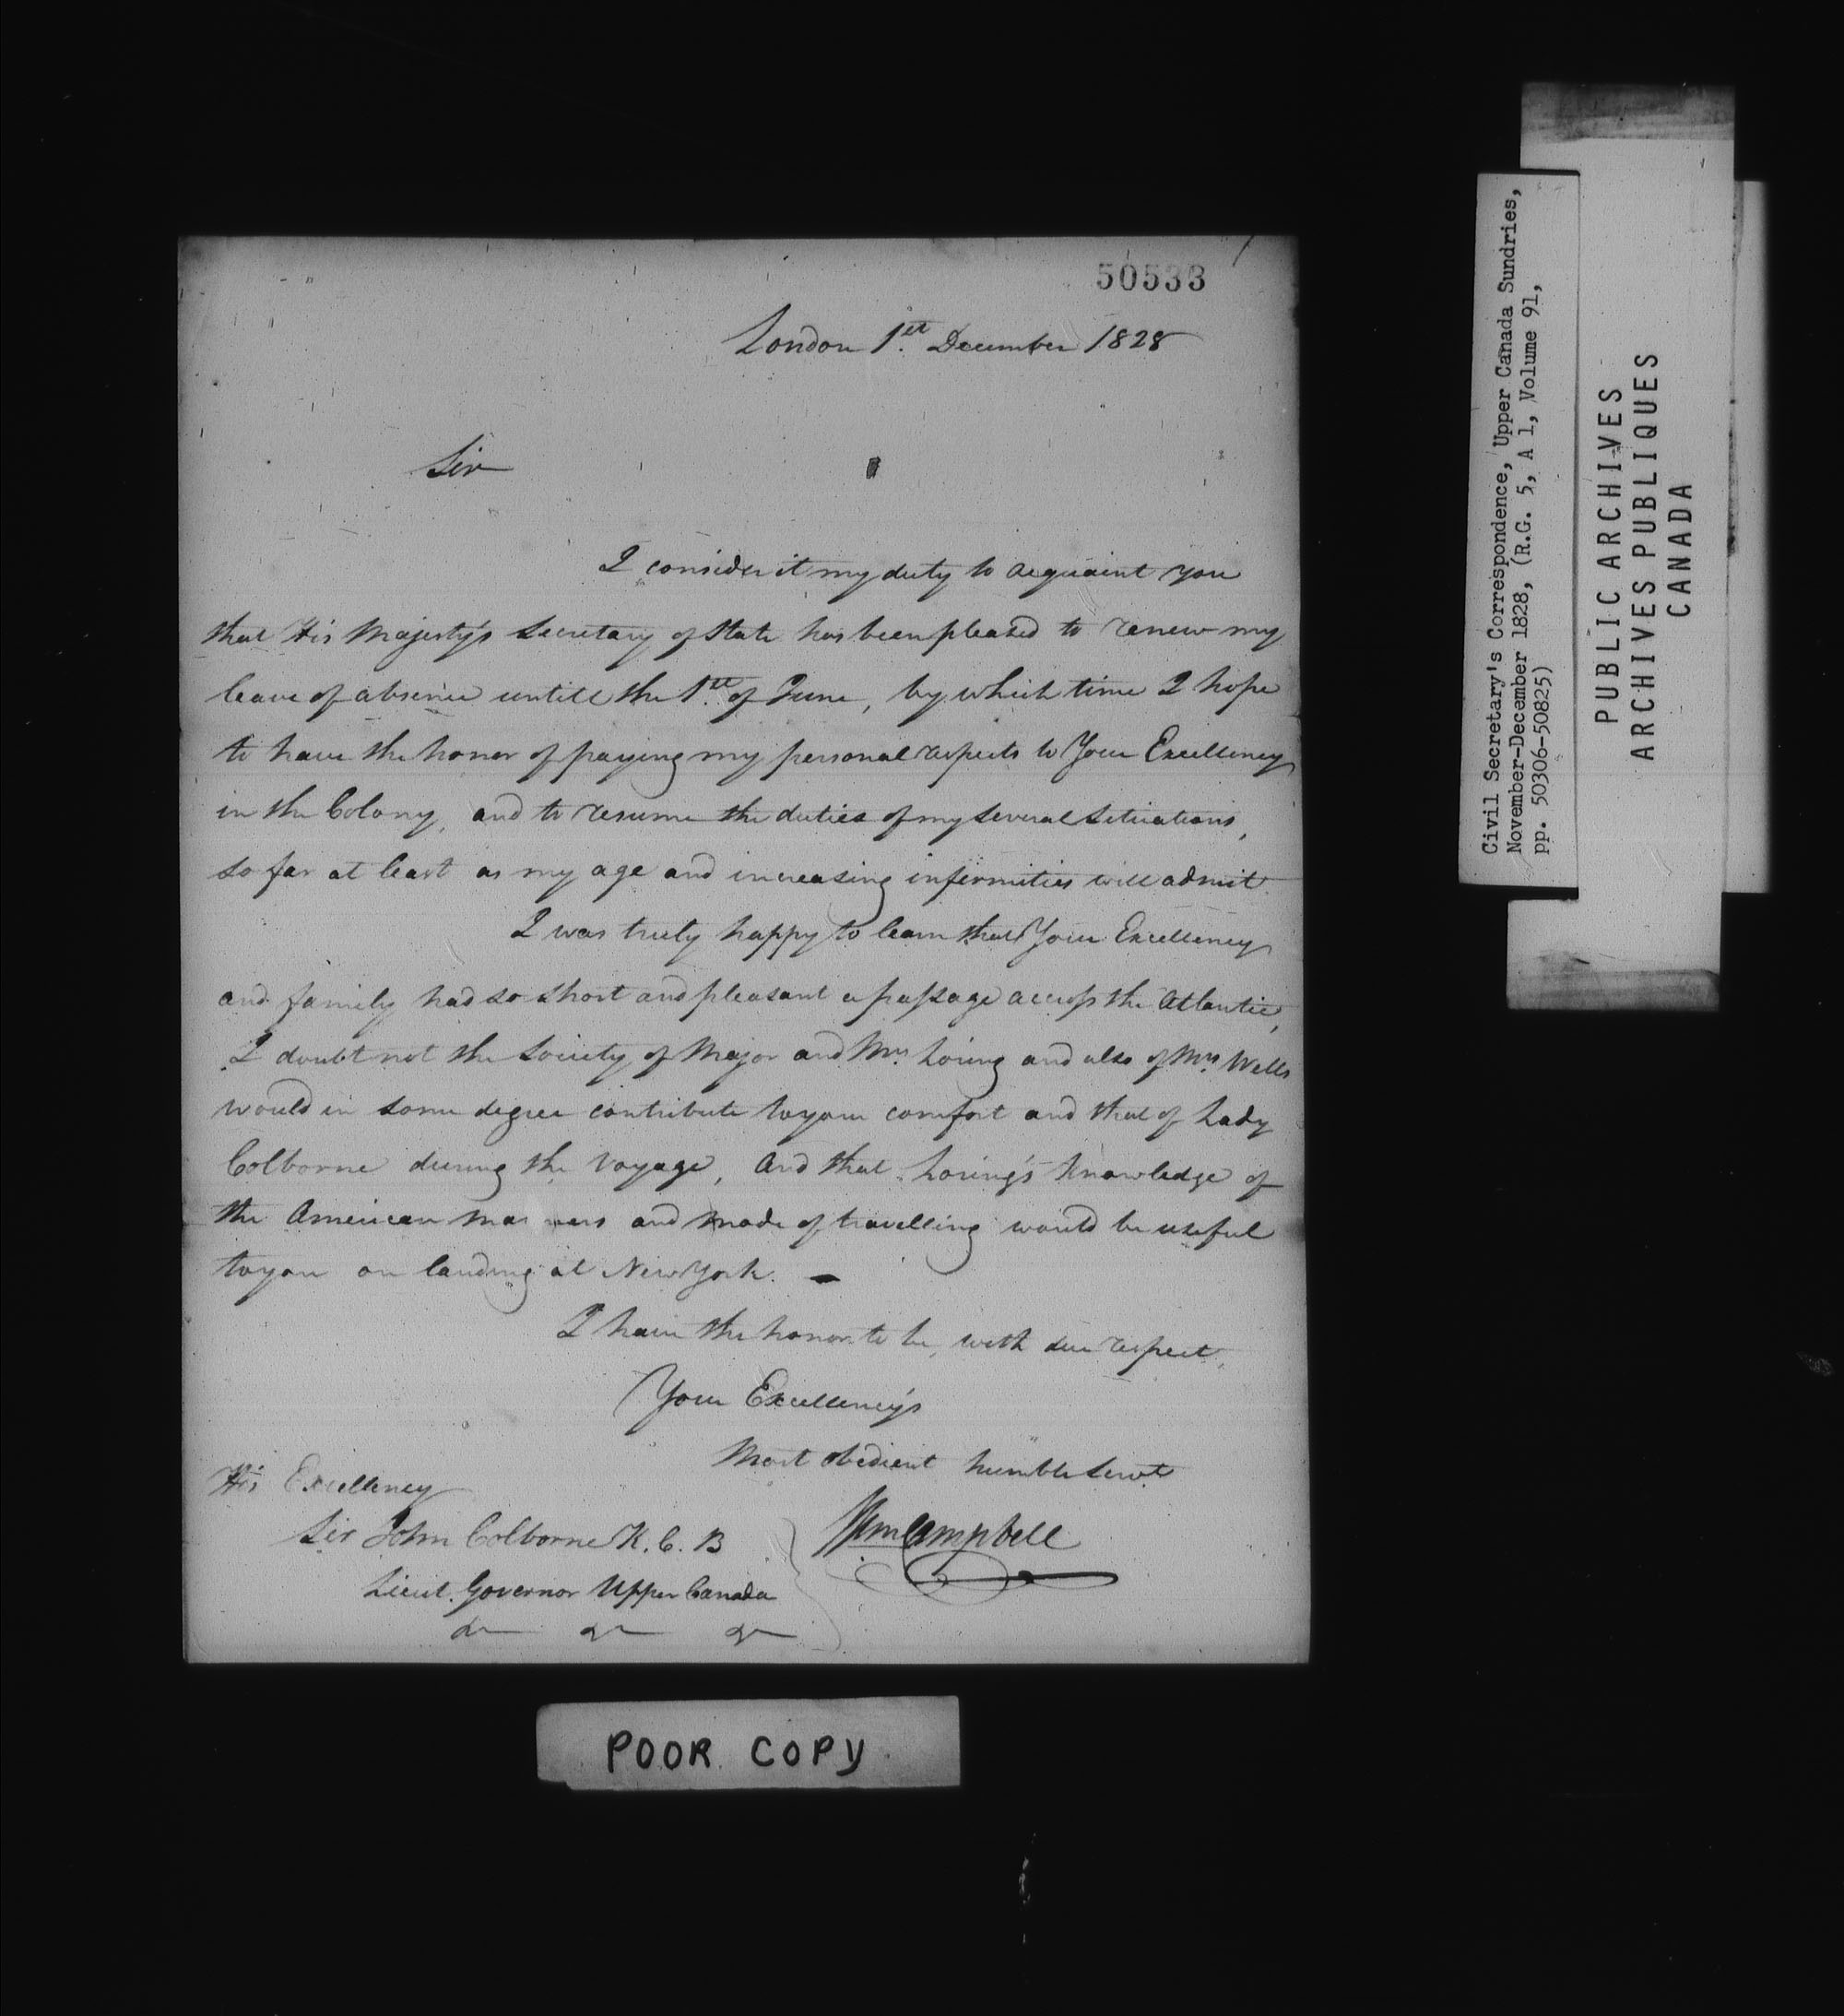 50533
London 1st. December 1828
Sir
I consider it my duty to acquaint you
that His Majesty's Secretary of State has been pleased to renew my
leave of absence untill the 1st. of June, by which time I hope
to have the honor of paying my personal respects to Your Excellency
in the Colony, and to resume the duties of my several situations,
so far at least as my age and increasing infirmities will admit.
I was truly happy to learn that Your Excellency
and family had so short and pleasant a passage accross the Atlantic,
I doubt not the Society of Major and Mrs. Loring and also of Mrs. Wells
would in some degree contribute to your comfort and that of Lady
Colborne during the voyage, and that Loring's knowledge of
the American manners and mode of travelling would be useful
to you on landing at New York. –
I have the honor to be, with due respect,
Your Excellency's
Most obedient humble Servt
Wm Campbell
His Excellency
Sir John Colborne K. C. B
Lieut. Governor Upper Canada
POOR COPY
Civil Secretary's Correspondence, Upper Canada Sundries,
November-December 1828, (R.G. 5, A 1, Volume 91,
pp. 50306-50825)
PUBLIC ARCHIVES
ARCHIVES PUBLIQUES
CANADA